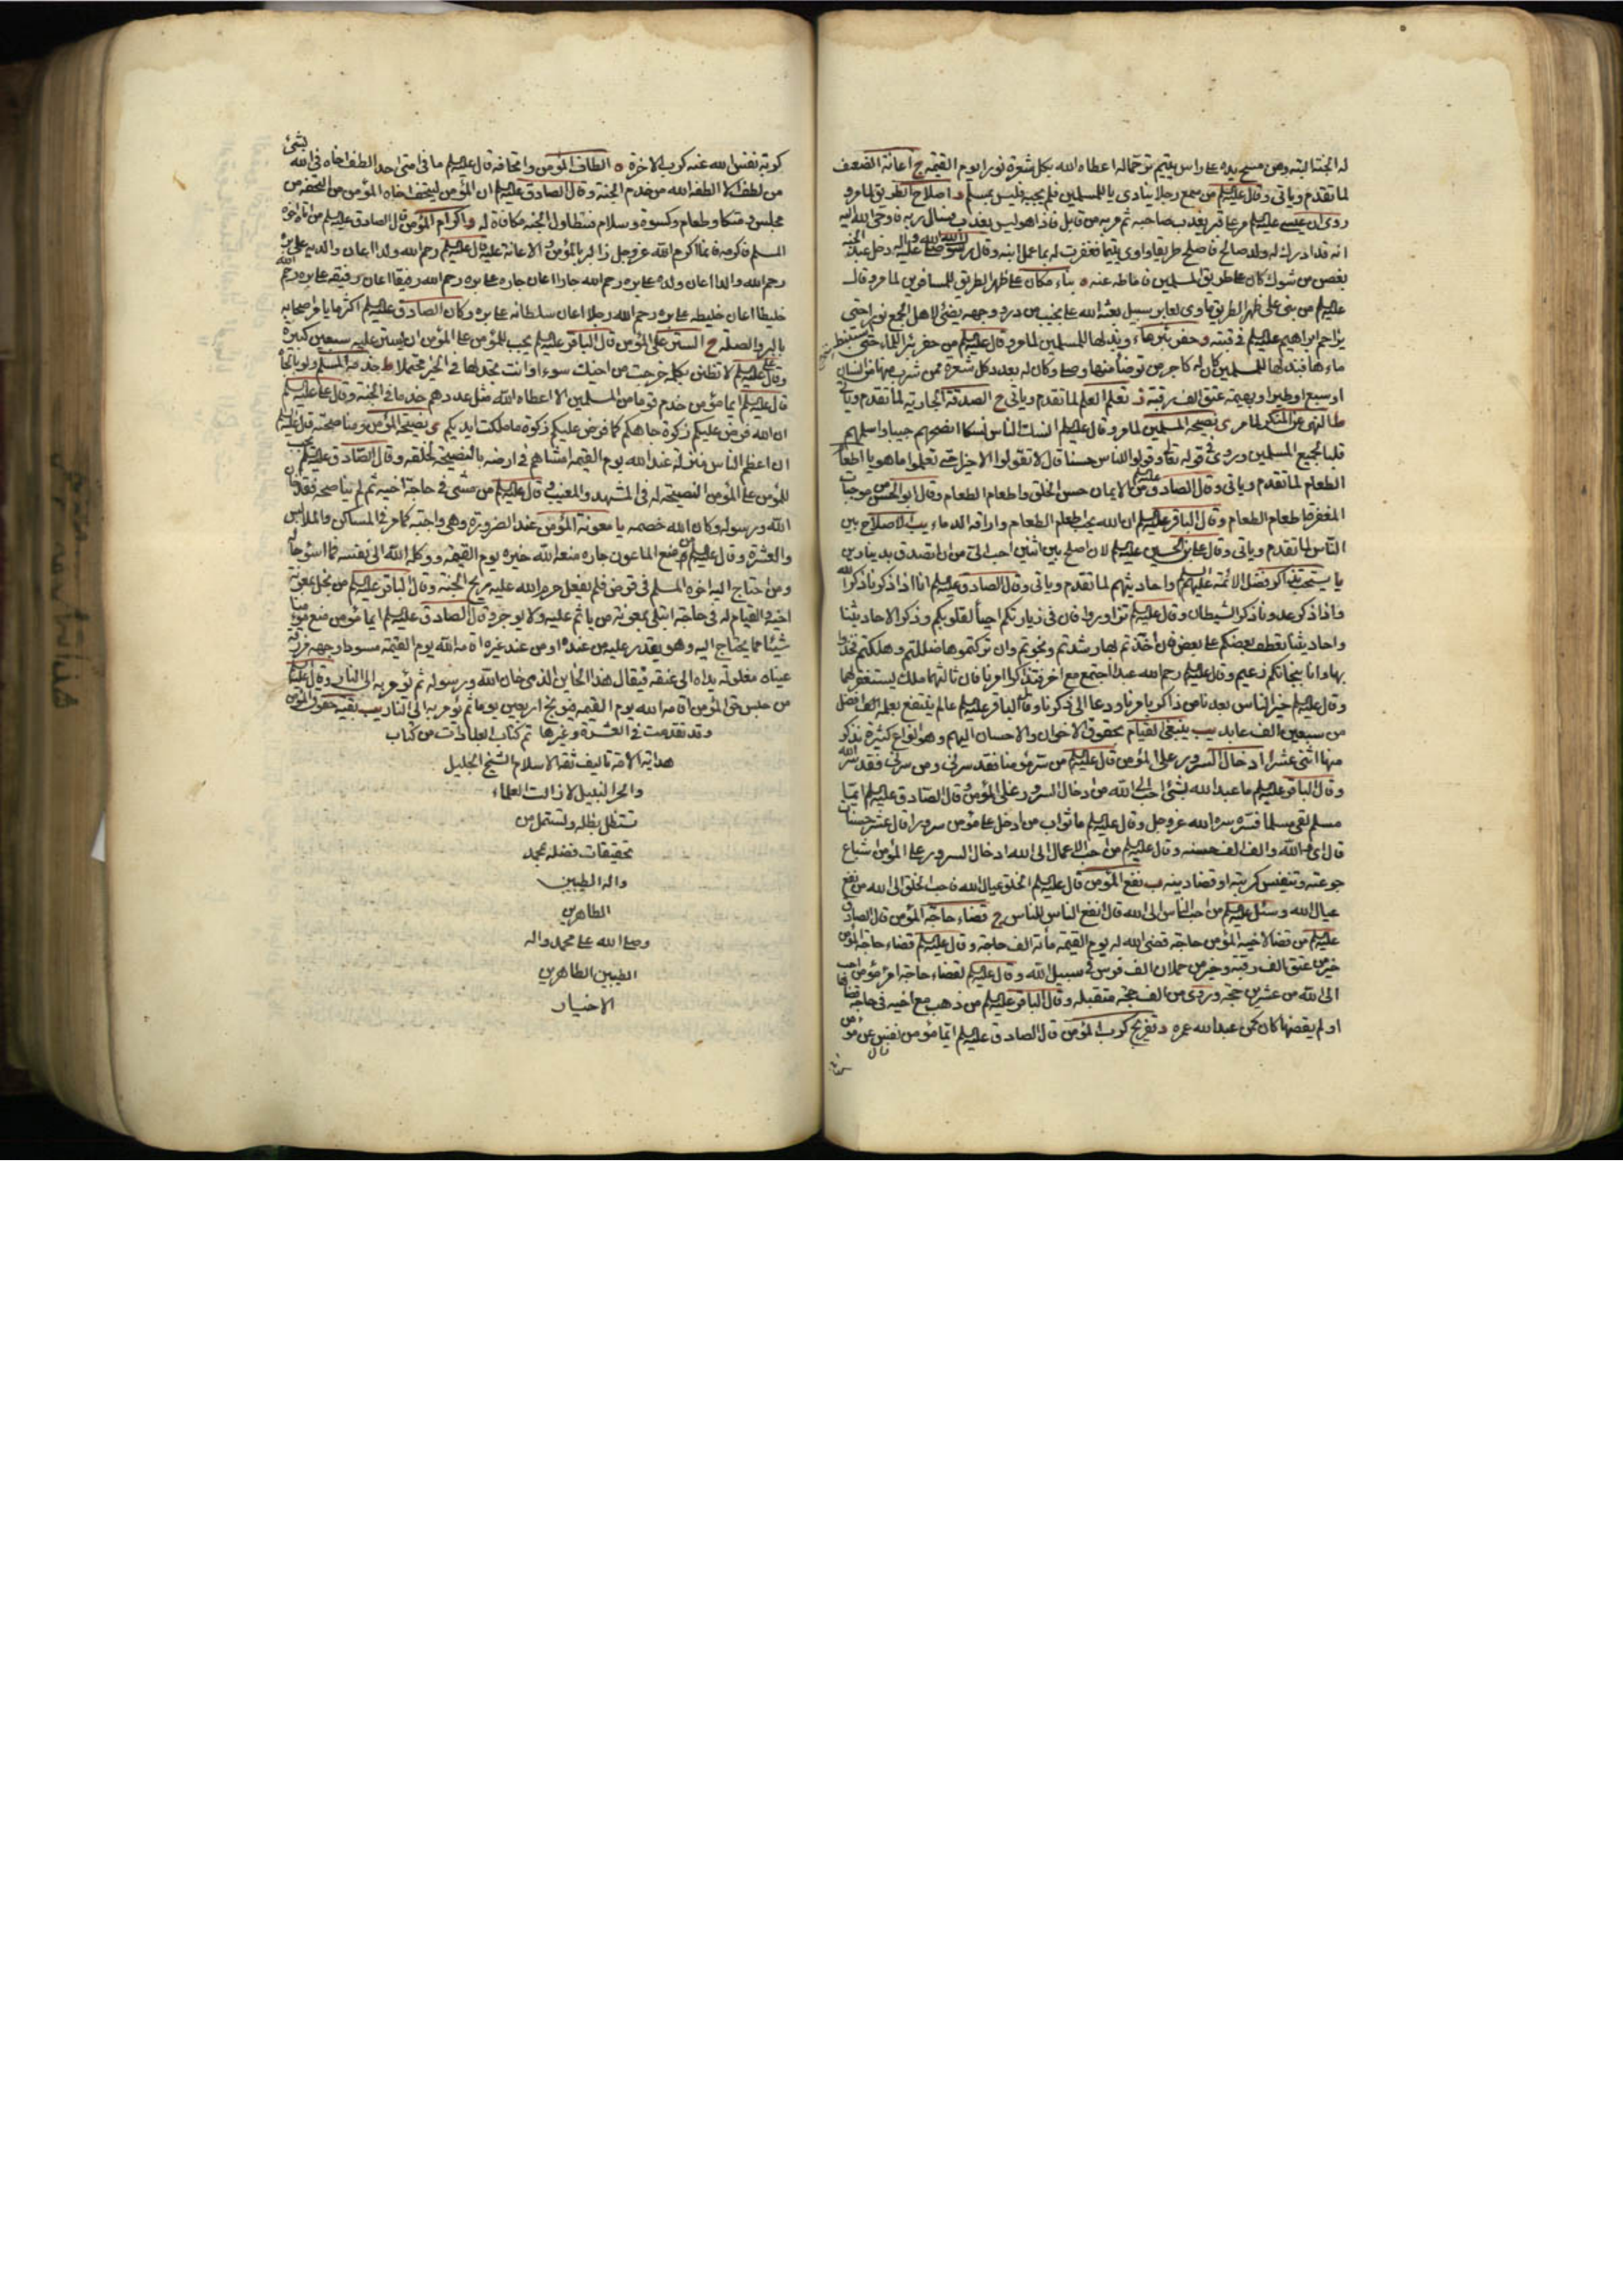 له الجنة البتة ومن مسح يده على راس يتيم ترحما له اعطاه الله بكل شعرة نورا يوم القيمة ج اعانة الضعيف
لما تقدم وياتى وقال عليه السلم من سمع رجلا ينادى يا للمسلمين فلم يجبه فليس بمسلم د اصلاح الطريق لما مر و
روى ان عيسى عليه السلم مر بقبر يعذب صاحبه ثم مر به من قابل فاذا هو ليس يعذب فسال ربه فاوحى الله اليه
انه قد ادرك له ولد صالح فاصلح طريقا واوى يتيما فغفرت له بما عمل ابنه وقال رسول الله صلى الله عليه واله دخل عبد الجنة
بغصن من شوك كان على طريق المسلمين فاماطه عنه ه بناء مكان على ظهر الطريق للمسافرين لما مر وقال
عليه السلم من بنى على ظهر الطريق ماوى لعابر سبيل بعثه الله على نجيب من در ووجهه يضئ لاهل الجمع نورا حتى
يزاحم ابراهيم عليه السلم فى قبته و حفر بئر ماء وبذلها للمسلمين لما مر وقال عليه السلم من حفر بئرا للماء حتى استنبط
ماءها فبذلها للمسلمين كان له كاجر من توضا منها وصلى وكان له بعدد كل شعرة ممن شرب منها من انسان
او سبع او طير او بهيمة عتق الف رقبة ز تعلم العلم لما تقدم وياتى ح الصدقة الجارية لما تقدم وياتى
ط النهى عن المنكر لما مر ى نصيحة المسلمين لما مر وقال عليه السلم انسك الناس نسكا انصحهم جيبا واسلمهم
قلبا لجميع المسلمين وروى فى قوله تعالى وقولوا للناس حسنا قال لا تقولوا الا خيرا حتى تعلموا ما هو يا اطعام
الطعام لما تقدم وياتى وقال الصادق عليه السلم من الايمان حسن الخلق واطعام الطعام وقال ابو الحسن من موجبات
المغفرة اطعام الطعام وقال الباقر عليه السلم ان الله يحب اطعام الطعام واراقة الدماء يب الاصلاح بين
الناس لما تقدم وياتى وقال على بن الحسين عليه السلم لان اصلح بين اثنين احب الى من ان اتصدق بدينارين
يا يستحب تذاكر فضل الائمة عليهم السلم واحاديثهم لما تقدم وياتى وقال الصادق عليه السلم انا اذا ذكرنا ذكر الله
واذا ذكر عدونا ذكر الشيطان وقال عليه السلم تزاوروا فان فى زيارتكم احياء لقلوبكم وذكرا لاحاديثنا
واحاديثنا تعطف بعضكم على بعض فان اخذتم بها رشدتم ونجوتم وان تركتموها ضللتم وهلكتم فخذوا
بها وانا بنجاتكم زعيم وقال عليه السلم رحم الله عبدا اجتمع مع اخر فتذاكرا امرنا فان ثالثهما ملك يستغفر لهما
وقال عليه السلم خير الناس بعدنا من ذاكر بامرنا ودعا الى ذكرنا وقال الباقر عليه السلم عالم ينتفع بعلمه افضل
من سبعين الف عابد يب ينبغى القيام بحقوق الاخوان والاحسان اليهم وهو انواع كثيرة نذكر
منها اثنى عشر ا ادخال السرور على المؤمن قال عليه السلم من سر مؤمنا فقد سرنى ومن سرنى فقد سر الله
وقال الباقر عليه السلم ما عبد الله بشئ احب الى الله من ادخال السرور على المؤمن وقال الصادق عليه السلم ايما
مسلم لقى مسلما فسره سره الله عز وجل وقال عليه السلم ما ثواب من ادخل على مؤمن سرورا قال عشر حسنات
قال اى والله والف الف حسنه وقال عليه السلم من احب الاعمال الى الله ادخال السرور على المؤمن اشباع
جوعته وتنفيس كربته او قضاء دينه ب نفع المؤمن قال عليه السلم الخلق عيال الله فاحب الخلق الى الله من نفع
عيال الله وسئل عليه السلم من احب الناس الى الله قال انفع الناس للناس ج قضاء حاجة المؤمن قال الصادق
عليه السلم من قضا لاخيه المؤمن حاجة قضى الله له يوم القيمة مأة الف حاجة وقال عليه السلم قضاء حاجة المؤمن
خير من عتق الف رقبة وخير من حملان الف فرس فى سبيل الله وقال عليه السلم لقضاء حاجة امرء مؤمن احب
الى الله من عشرين حجة وروى من الف حجة متقبله وقال الباقر عليه السلم من ذهب مع اخيه فى حاجة قضاها
او لم يقضها كان كمن عبد الله عمره د تفريج كرب المؤمن قال الصادق عليه السلم ايما مؤمن نفس عن مؤمن
كربة نفس الله عنه كرب الاخرة ه الطاف المؤمن واتحافه قال عليه السلم ما فى امتى احد الطف اخاه فى الله بشئ
من لطف الا الطفه الله من خدم الجنة وقال الصادق عليه السلم ان المؤمن ليتحف اخاه المؤمن من التحفة من
مجلس ومتكا وطعام وكسوة وسلام فتطاول الجنة مكافاة له و اكرام المؤمن قال الصادق عليه السلم من اتاه اخوه
المسلم فاكرمه فانما اكرم الله عز وجل ز البر بالمؤمن والاعانة عليه قال عليه السلم رحم الله ولدا اعان والديه على بره
رحم الله والدا اعان ولده على بره رحم الله جارا اعان جاره على بره رحم الله رفيقا اعان رفيقه على بره رحم الله
خليطا اعان خليطه على بره رحم الله رجلا اعان سلطانه على بره وكان الصادق عليه السلم اكثر ما يامر اصحابه
بالبر والصلة ح الستر على المؤمن قال الباقر عليه السلم يجب للمؤمن على المؤمن ان يستر عليه سبعين كبيرة
وقال على عليه السلم لا تظنن بكلمة خرجت من اخيك سوءا وانت تجد لها فى الخير محتملا ط خدمة المسلم ولو بالجاه
قال عليه السلم ايما مؤمن خدم قوما من المسلمين الا اعطاه الله مثل عددهم خداما فى الجنة وقال على عليه السلم
ان الله فرض عليكم زكوة جاهكم كما فرض عليكم زكوة ما ملكت ايديكم ى نصيحة المؤمن ومناصحته قال عليه السلم
ان اعظم الناس منزلة عند الله يوم القيمة امشاهم فى ارضه بالنصيحة لخلقه وقال الصادق عليه السلم يجب
للمؤمن على المؤمن النصيحة له فى المشهد والمغيب وقال عليه السلم من مشى فى حاجة اخيه ثم لم يناصحه فقد خان
الله ورسوله وكان الله خصمه يا معونة المؤمن عند الضرورة وهى واجبة كما مر فى المساكن والملابس
والعشرة وقال عليه السلم من منع الماعون جاره منعه الله خيره يوم القيمة ووكله الله الى نفسه فما اسوء حاله
ومن احتاج اليه اخوه المسلم فى قرض فلم يفعل حرم الله عليه ريح الجنة وقال الباقر عليه السلم من بخل بمعونة
اخيه والقيام له فى حاجة ابتلى بمعونة من ياثم عليه ولا يوجر وقال الصادق عليه السلم ايما مؤمن منع مؤمنا
شيئا مما يحتاج اليه وهو يقدر عليه من عنده او من عند غيره اقامه الله يوم القيمة مسودا وجهه مزرقة
عيناه مغلولة يداه الى عنقه فيقال هذا الخاين الذى خان الله ورسوله ثم يؤمر به الى النار وقال عليه السلم
من حبس حق المؤمن اقامه الله يوم القيمة فيوبخ اربعين يوما ثم يؤمر به الى النار يب بقية حقوق المؤمن
وقد تقدمت فى العشرة وغيرها تم كتاب العبادات من كتاب
هداية الامة تاليف ثقة الاسلام الشيخ الجليل
والحر النبيل لا زالت العلماء
تستظل بظله وتستمل من
تحقيقات فضله بمحمد
واله الطيبين
الطاهرين
وصلى الله على محمد واله
الطيبين الطاهرين
الاخيار